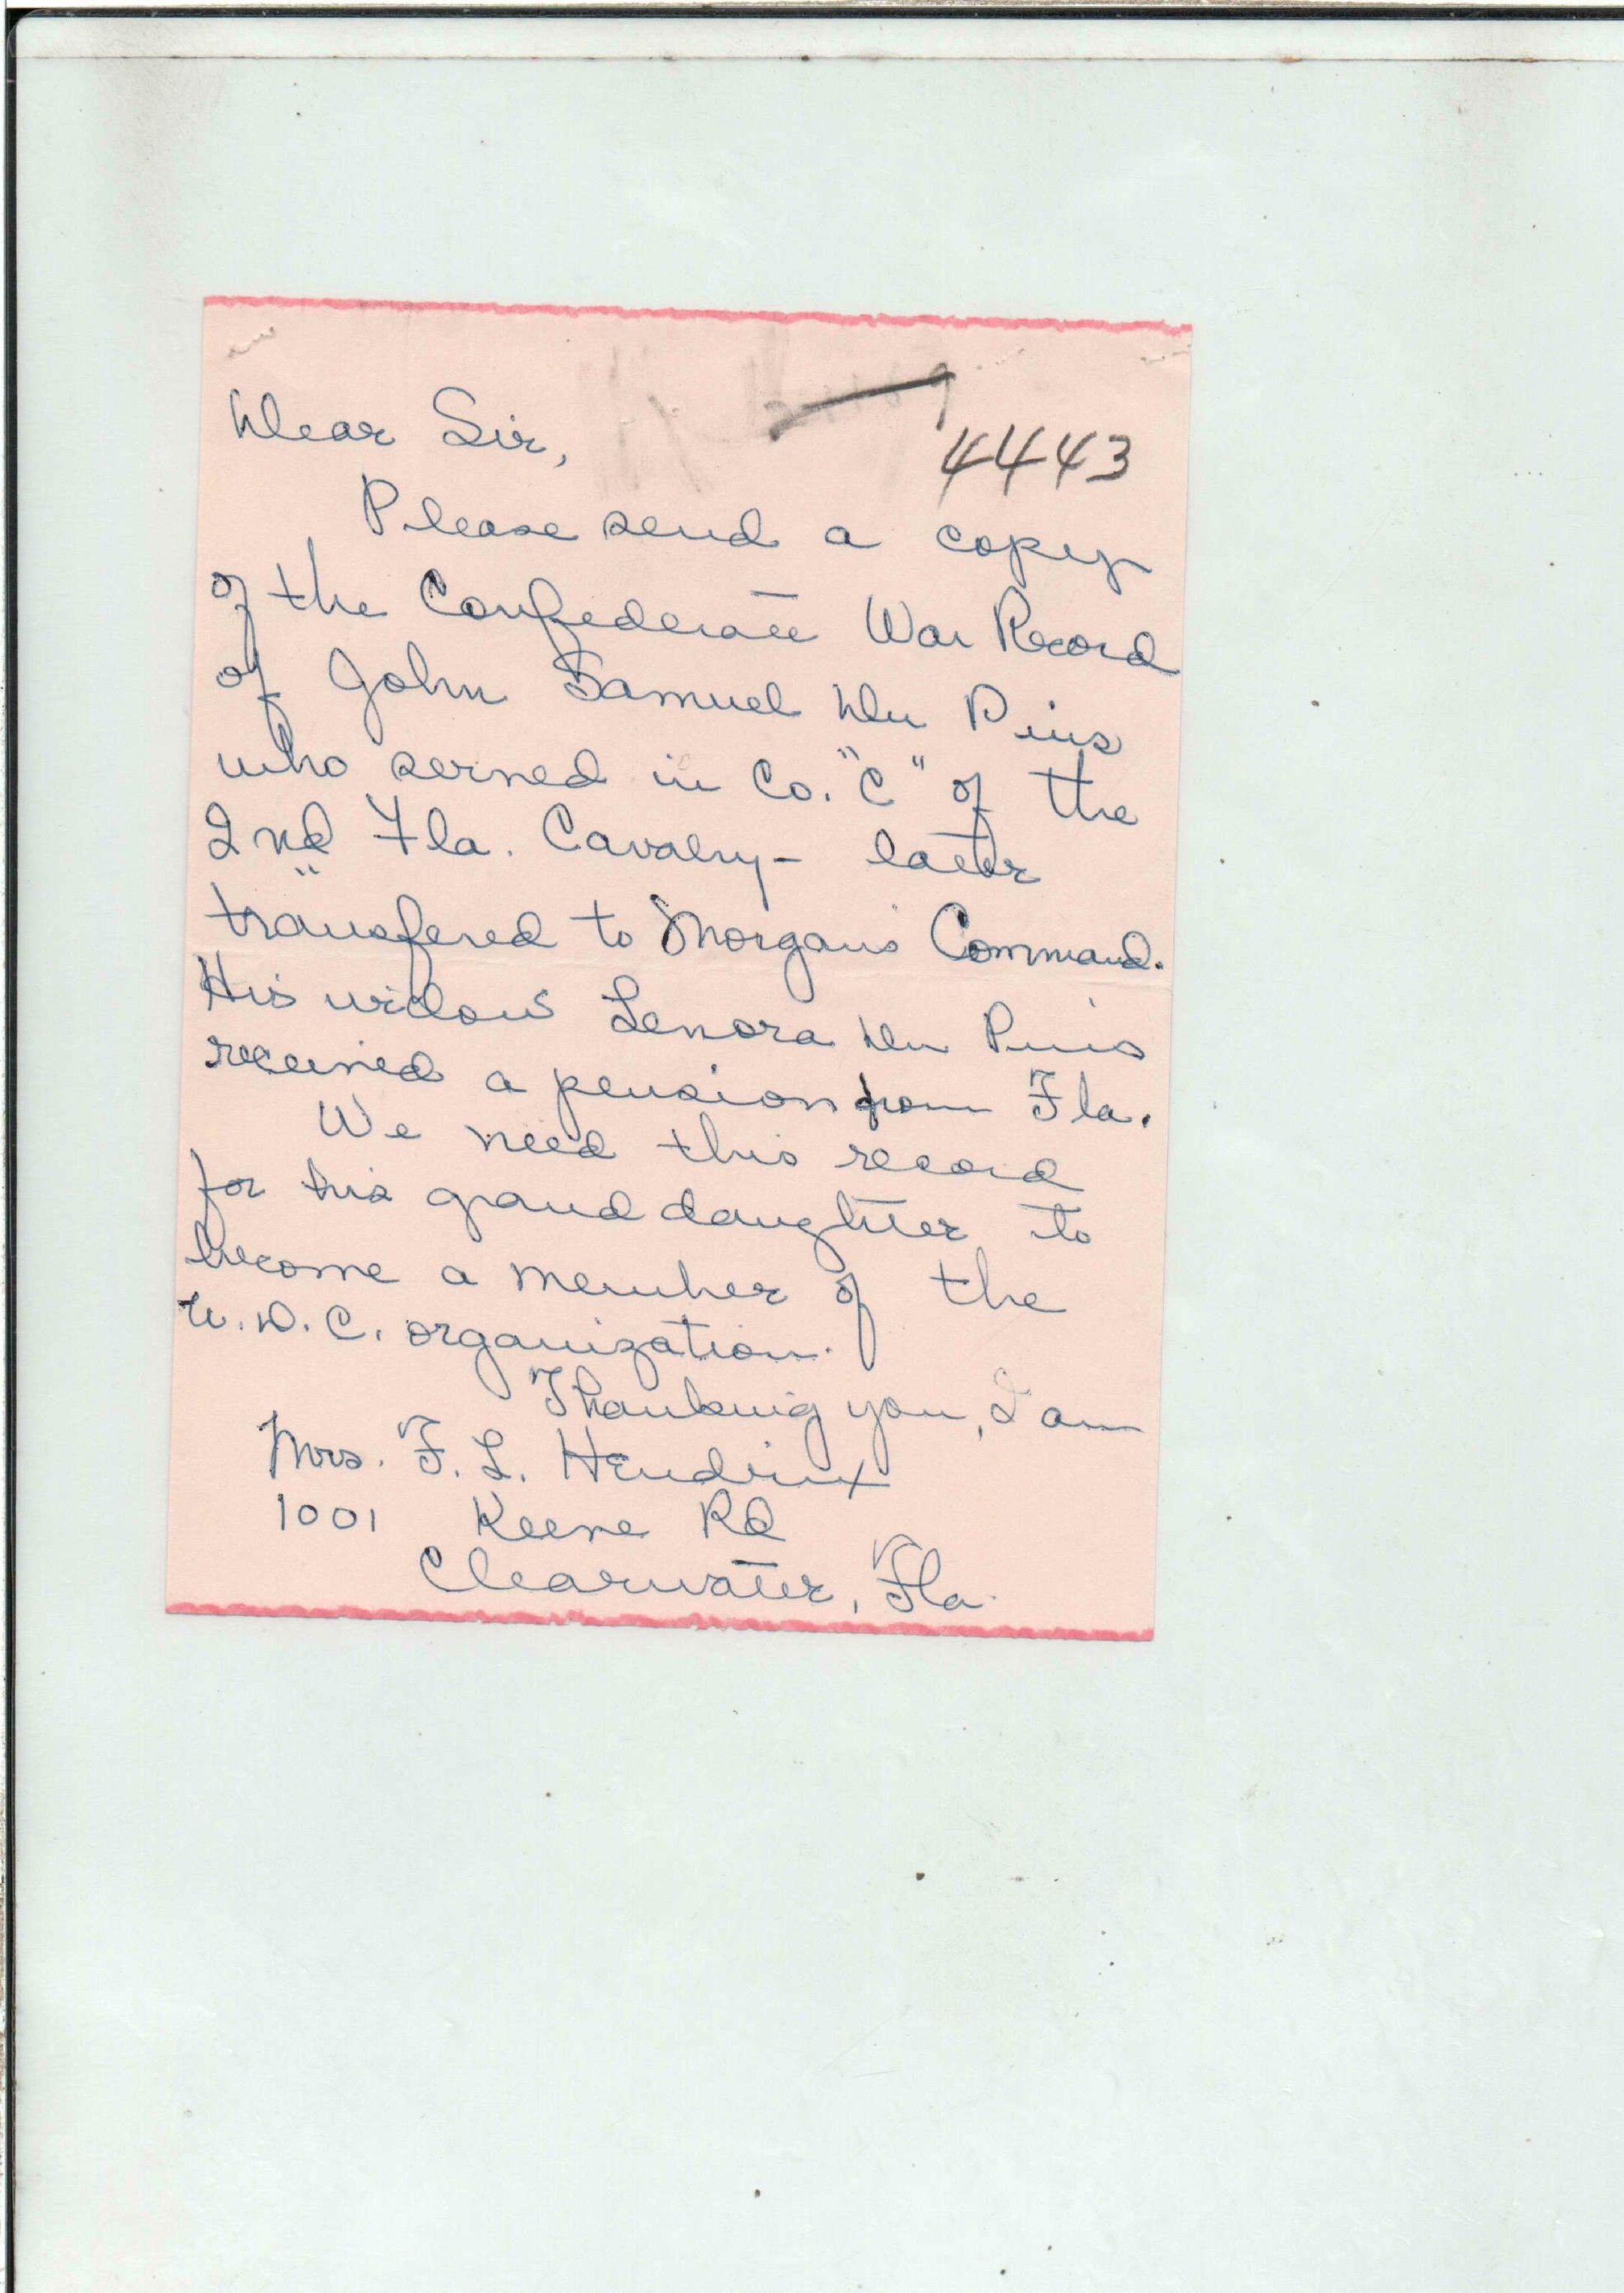 Dear Sir,
4443
Please send a copy
of the Confederate War Record
of John Samuel Du Puis
who served in Co. "C" of the
2nd Fla. Cavalry - later
transfered to Morgans Command.
His widow Lenora Du Puis
received a pension from Fla.
We need this record
for his grand daughter to
become a member of the
U.D.C. organization.
Thanking you, I am
Mrs. F. L. Hendrix
1001 Keene Rd
Clearwater, Fla.